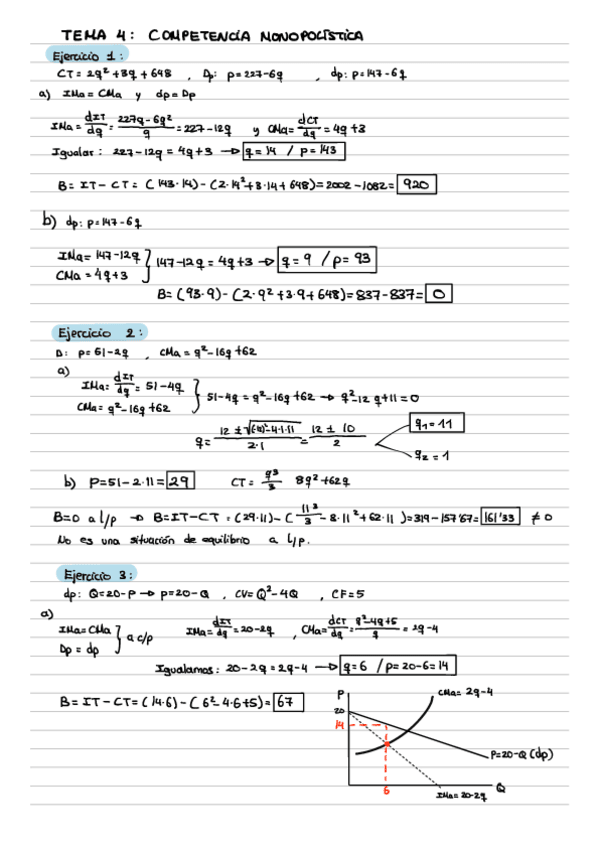 TEMA 4: COMPETENCIA MONOPOLÍSTICA
Ejercicio 1:
CT = 2q² + 3q + 648 , Dp: p = 227-6q , dp: p = 147-6q
a) IMa = CMa y dp = Dp
IMa = dIT/dq = 227q-6q²/q = 227-12q y CMa = dCT/dq = 4q+3
Igualar: 227-12q = 4q+3 → q = 14 / p = 143
B = IT - CT = (143·14) - (2·14² + 3·14 + 648) = 2002 - 1082 = 920
b) dp: p = 147-6q
IMa = 147-12q
CMa = 4q+3
} 147-12q = 4q+3 → q = 9 / p = 93
B = (93·9) - (2·9² + 3·9 + 648) = 837-837 = 0
Ejercicio 2:
D: p = 51-2q , CMa = q²-16q+62
a)
IMa = dIT/dq = 51-4q
CMa = q²-16q+62
} 51-4q = q²-16q+62 → q²-12q+11 = 0
q = 12 ± √(-12)²-4·1·11 / 2·1 = 12 ± 10 / 2
q₁ = 11
q₂ = 1
b) P = 51-2·11 = 29 CT = q³/3 8q²+62q
B=0 a l/p → B = IT-CT = (29·11) - (11³/3 - 8·11² + 62·11) = 319-157'67 = 161'33 ≠ 0
No es una situación de equilibrio a l/p.
Ejercicio 3:
dp: Q = 20-P → p = 20-Q , CV = Q²-4Q , CF = 5
a)
IMa = CMa
Dp = dp
} a c/p IMa = dIT/dq = 20-2q , CMa = dCT/dq = q²-4q+5/q = 2q-4
Igualamos: 20-2q = 2q-4 → q = 6 / p = 20-6 = 14
B = IT - CT = (14·6) - (6²-4·6+5) = 67
P
CMa = 2q-4
20
14
P=20-Q (dp)
6
Q
IMa = 20-2q